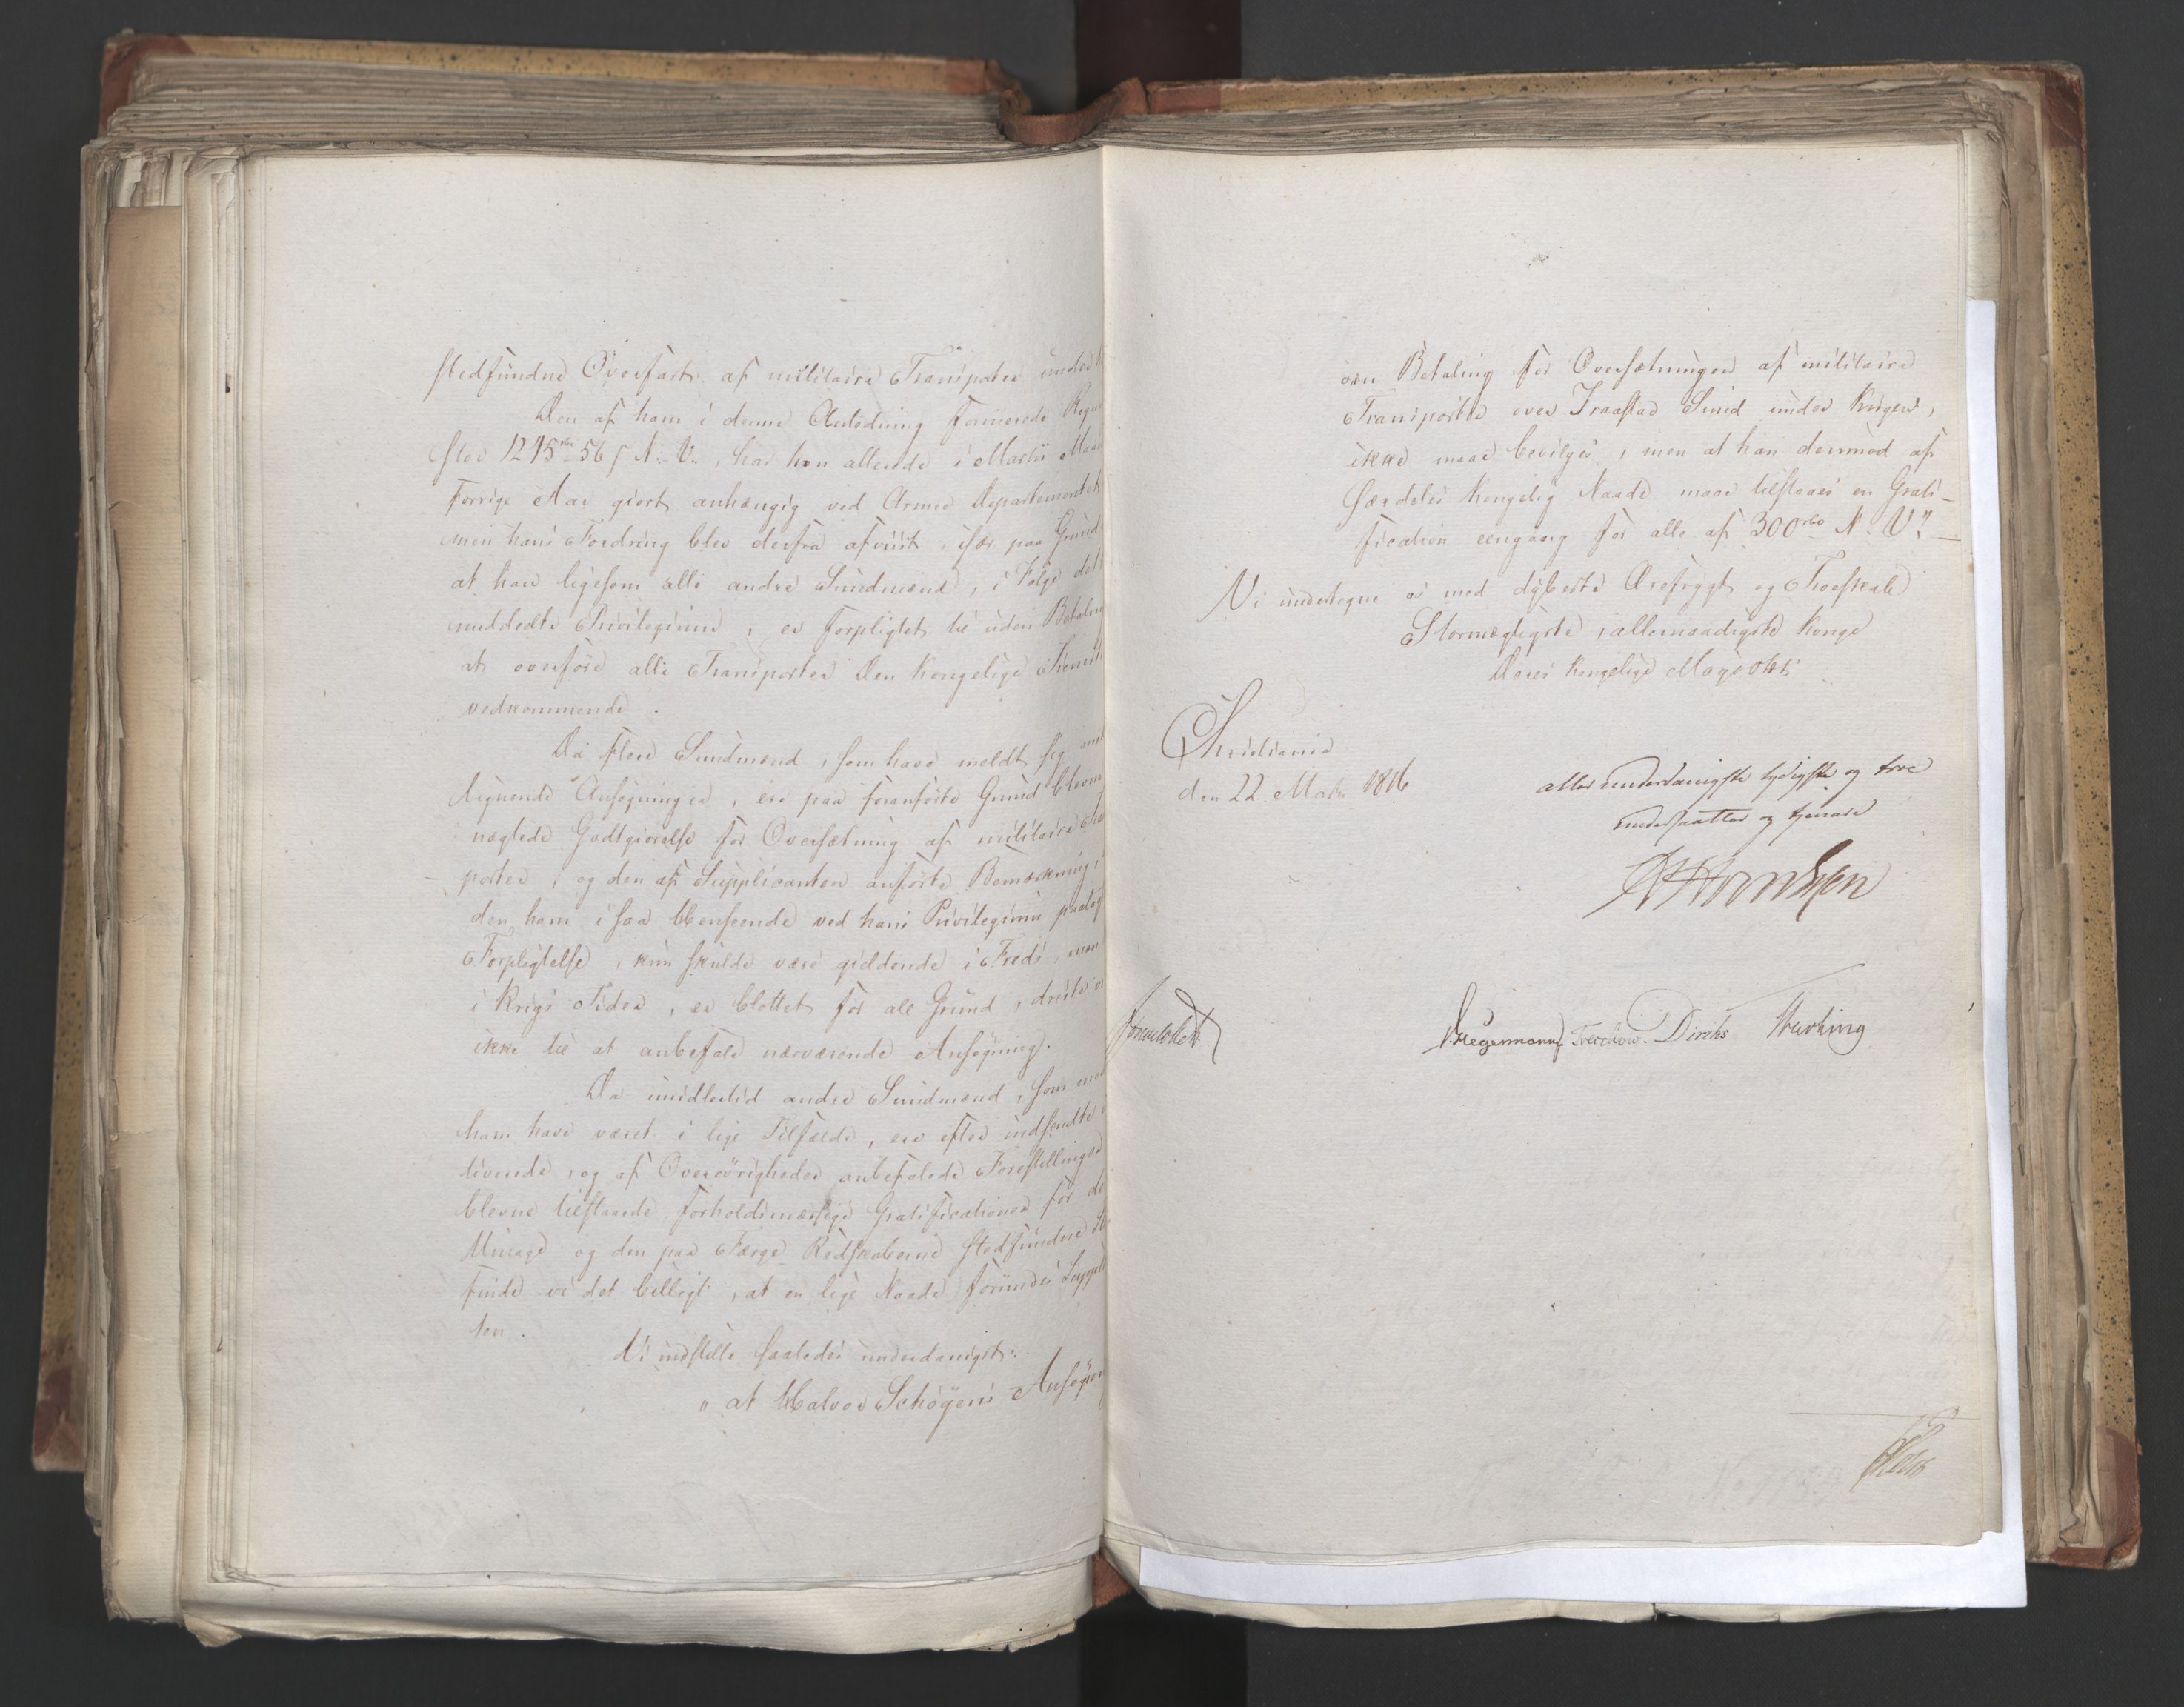 stedfundne Overfart af militaire Transporter under
Den af ham i denne Anledning formerede Regn
stor 1215 rbd 56 s N. V., har han allerede i Martii Maan
forrige Aar giort anhængig ved Armee Departementet
men hans Fordring blev derfra afviist, især paa Grund
at han ligesom alle andre Sundmænd, i Følge det
meddeelte Privilegium, er forpligtet til uden Betaling
at overføre alle Transporter Den Kongelige Tieneste
vedkommende.
Da flere Sundmænd, som have meldt sig med
lignende Ansøgninger, ere paa foranførte Grund blevne
nægtede Godtgiørelse for Oversætning af militaire
porter, og den af Supplicanten anførte Bemærkning,
den ham i saa Henseende ved hans Privilegium paalagt
Forpligtelse, kun skulde være gieldende i Freds, men
i Krigs Tider, er blottet for all Grund, driste vi
ikke til at anbefale nærværende Ansøgning.
Da imidlertid andre Sundmænd, som med
ham have været i lige Tilfælde, ere efter indsendte
tiverede, og af Overøvrigheder anbefalede Forestillinger
blevne tilstaaede forholdsmæssige Gratificationer for de
Umage og den paa Færge Redskaberne stedfundne
finde vi det billigt, at en lige Naade forundes Suppli
ten.
Vi indstille saaledes underdanigst:
" at Halvor Schøyens Ansøgning
om Betaling for Oversætningen af militaire
Transporter over Fraastad Sund under Krigen,
ikke maae bevilges, men at han derimod af
særdeles Kongelig Naade maae tilstaaes en Grati-
fication eengang for alle af 300 rbd N. V."
Vi undertegne os med dybeste Ærefrygt og Troeskab
Stormægtigste, allernaadigste Konge
Deres Kongelige Majestæts
Christiania
den 22 Marts 1816
allerunderdanigste lydigste og troe
undersaatter og tjenere
Hegermann. Treschow. Diriks